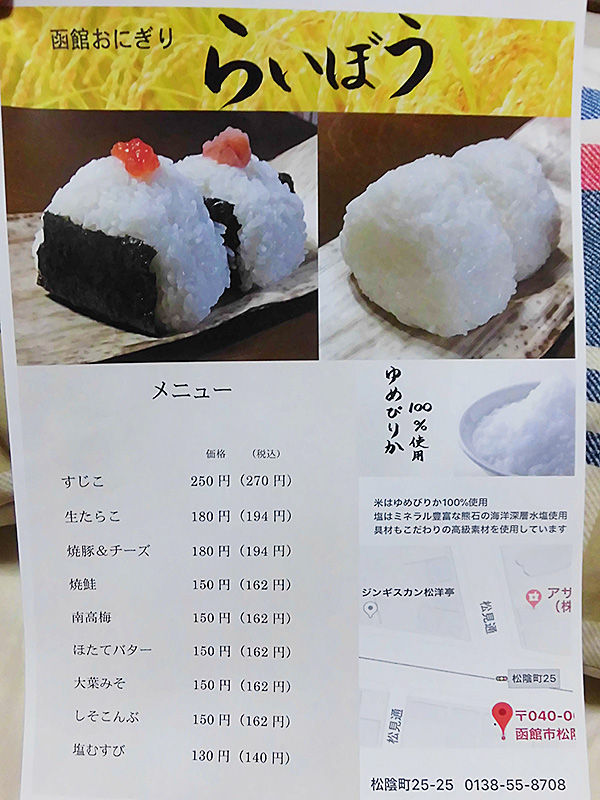 函館おにぎり
らいぼう
メニュー
価格 (税込)
すじこ 250円 (270円)
生たらこ 180円 (194円)
焼豚&チーズ 180円 (194円)
焼鮭 150円 (162円)
南高梅 150円 (162円)
ほたてバター 150円 (162円)
大葉みそ 150円 (162円)
しそこんぶ 150円 (162円)
塩むすび 130円 (140円)
ゆめぴりか
100%使用
米はゆめぴりか100%使用
塩はミネラル豊富な熊石の海洋深層水塩使用
具材もこだわりの高級素材を使用しています
ジンギスカン松洋亭
松見通
アサ
(株
松陰町25
松見通
〒040-0
函館市松陰
松陰町25-25 0138-55-8708